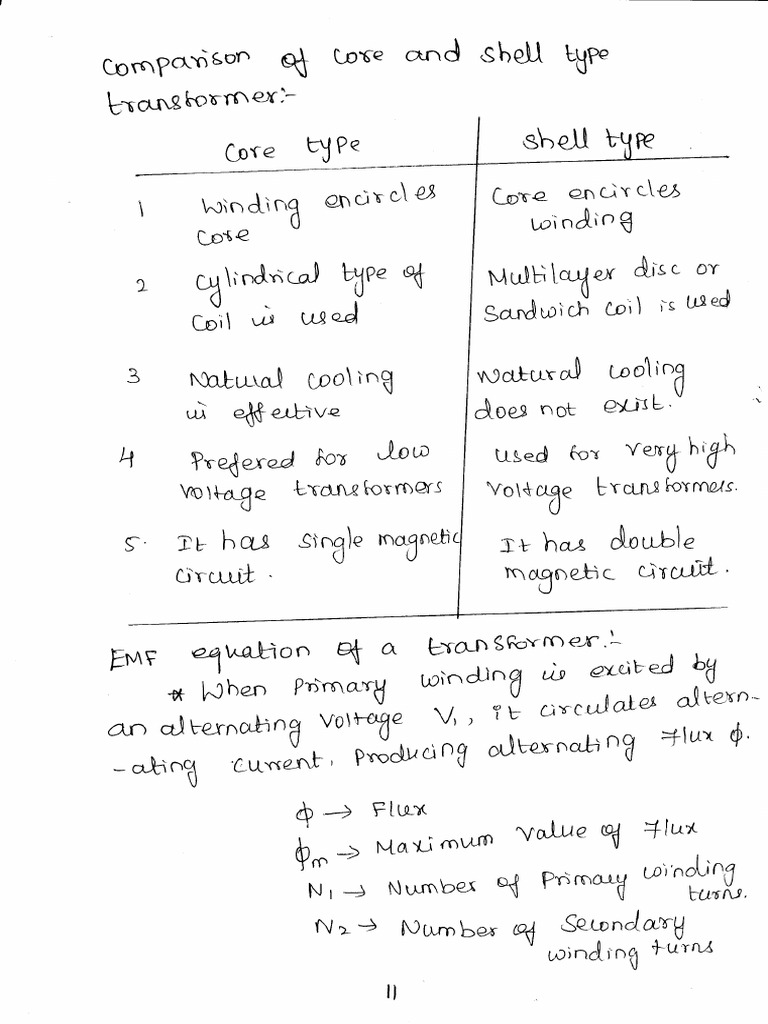 Comparison of core and shell type
transformer:-
Core type
Shell type
1 Winding encircles
core
Core encircles
winding
2 Cylindrical type of
coil is used
Multilayer disc or
Sandwich coil is used
3 Natural cooling
is effective
Natural cooling
does not exist.
4 Prefered for low
voltage transformers
Used for very high
voltage transformers.
5. It has single magnetic
circuit.
It has double
magnetic circuit.
EMF equation of a transformer:-
* When Primary winding is excited by
an alternating voltage V₁, it circulates altern-
-ating current, producing alternating flux ϕ.
ϕ → Flux
ϕm → Maximum value of flux
N₁ → Number of Primary winding
turns.
N₂ → Number of Secondary
winding turns
11